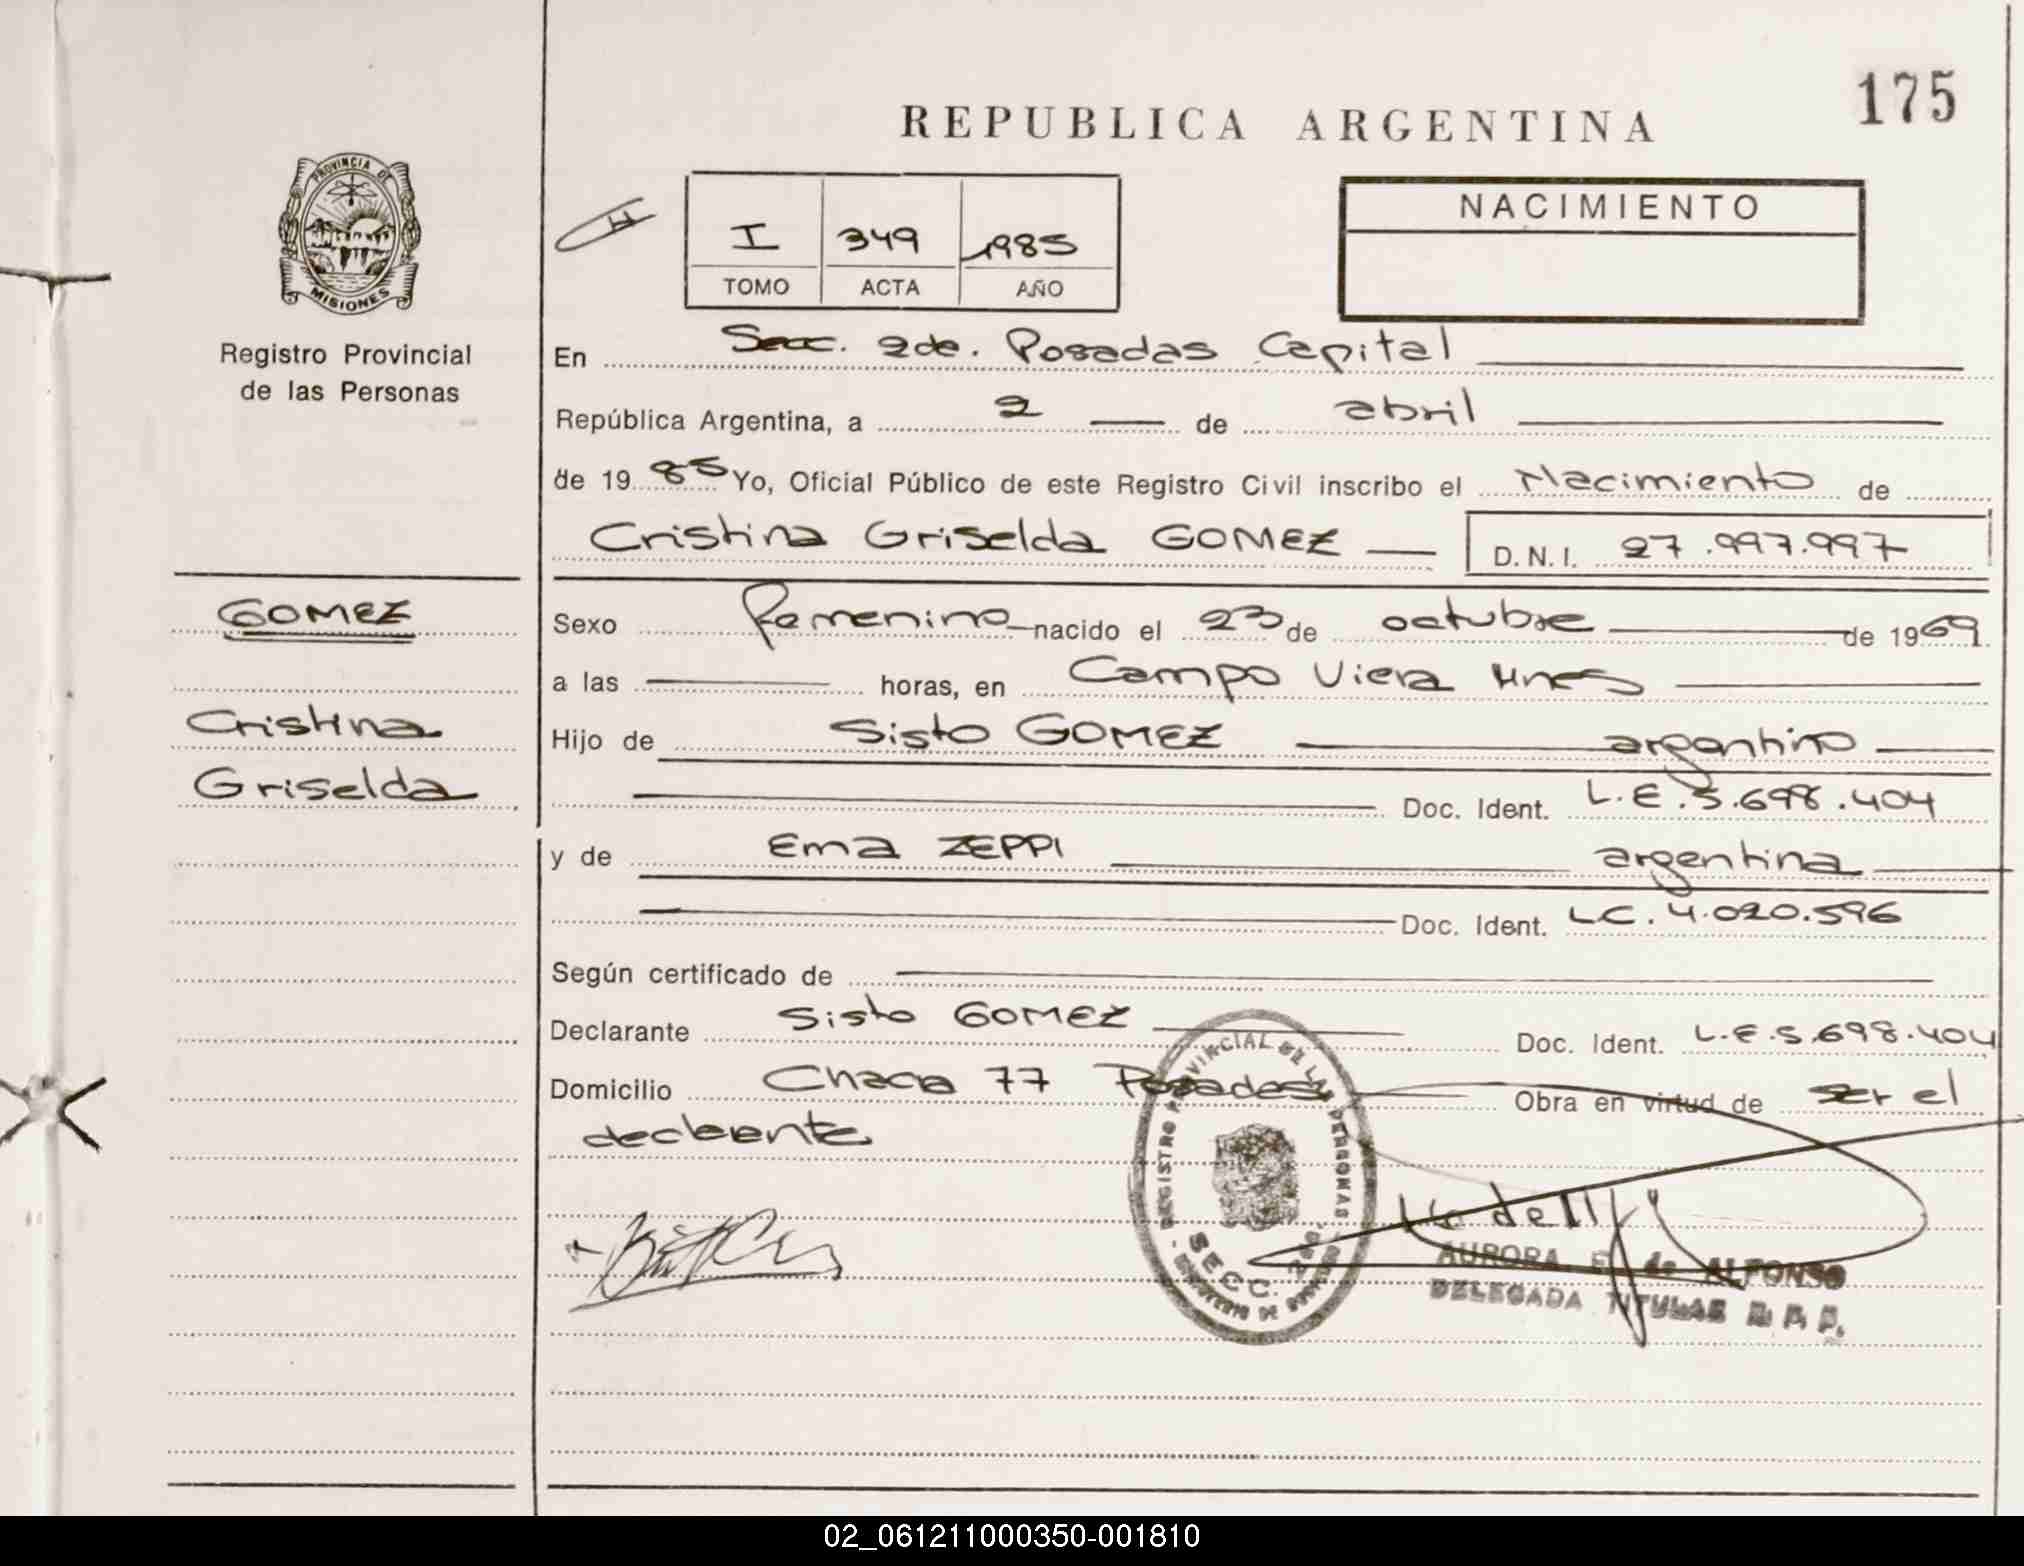 175
REPUBLICA ARGENTINA
PROVINCIA DE
MISIONES
Registro Provincial
de las Personas
NACIMIENTO
I 349 1985
TOMO ACTA AÑO
En Secc. 2da. Posadas Capital
República Argentina, a 2 de abril
de 1985 Yo, Oficial Público de este Registro Civil inscribo el Nacimiento de
Cristina Griselda GOMEZ D.N.I. 27.997.997
GOMEZ
Cristina
Griselda
Sexo femenino nacido el 23 de octubre de 1969.
a las horas, en Campo Viera Mnes
Hijo de Sisto GOMEZ argentino
Doc. Ident. L.E.5.698.404
y de Ema ZEPPI argentina
Doc. Ident. LC.4.020.596
Según certificado de
Declarante Sisto GOMEZ Doc. Ident. L.E.5.698.404
Domicilio Chacra 77 Posadas Obra en virtud de ser el
declarante
REGISTRO PROVINCIAL DE LAS PERSONAS
SECC.
MINISTERIO DE GOBIERNO
AURORA de ALFONSO
DELEGADA TITULAR R. P. P.
02_061211000350-001810